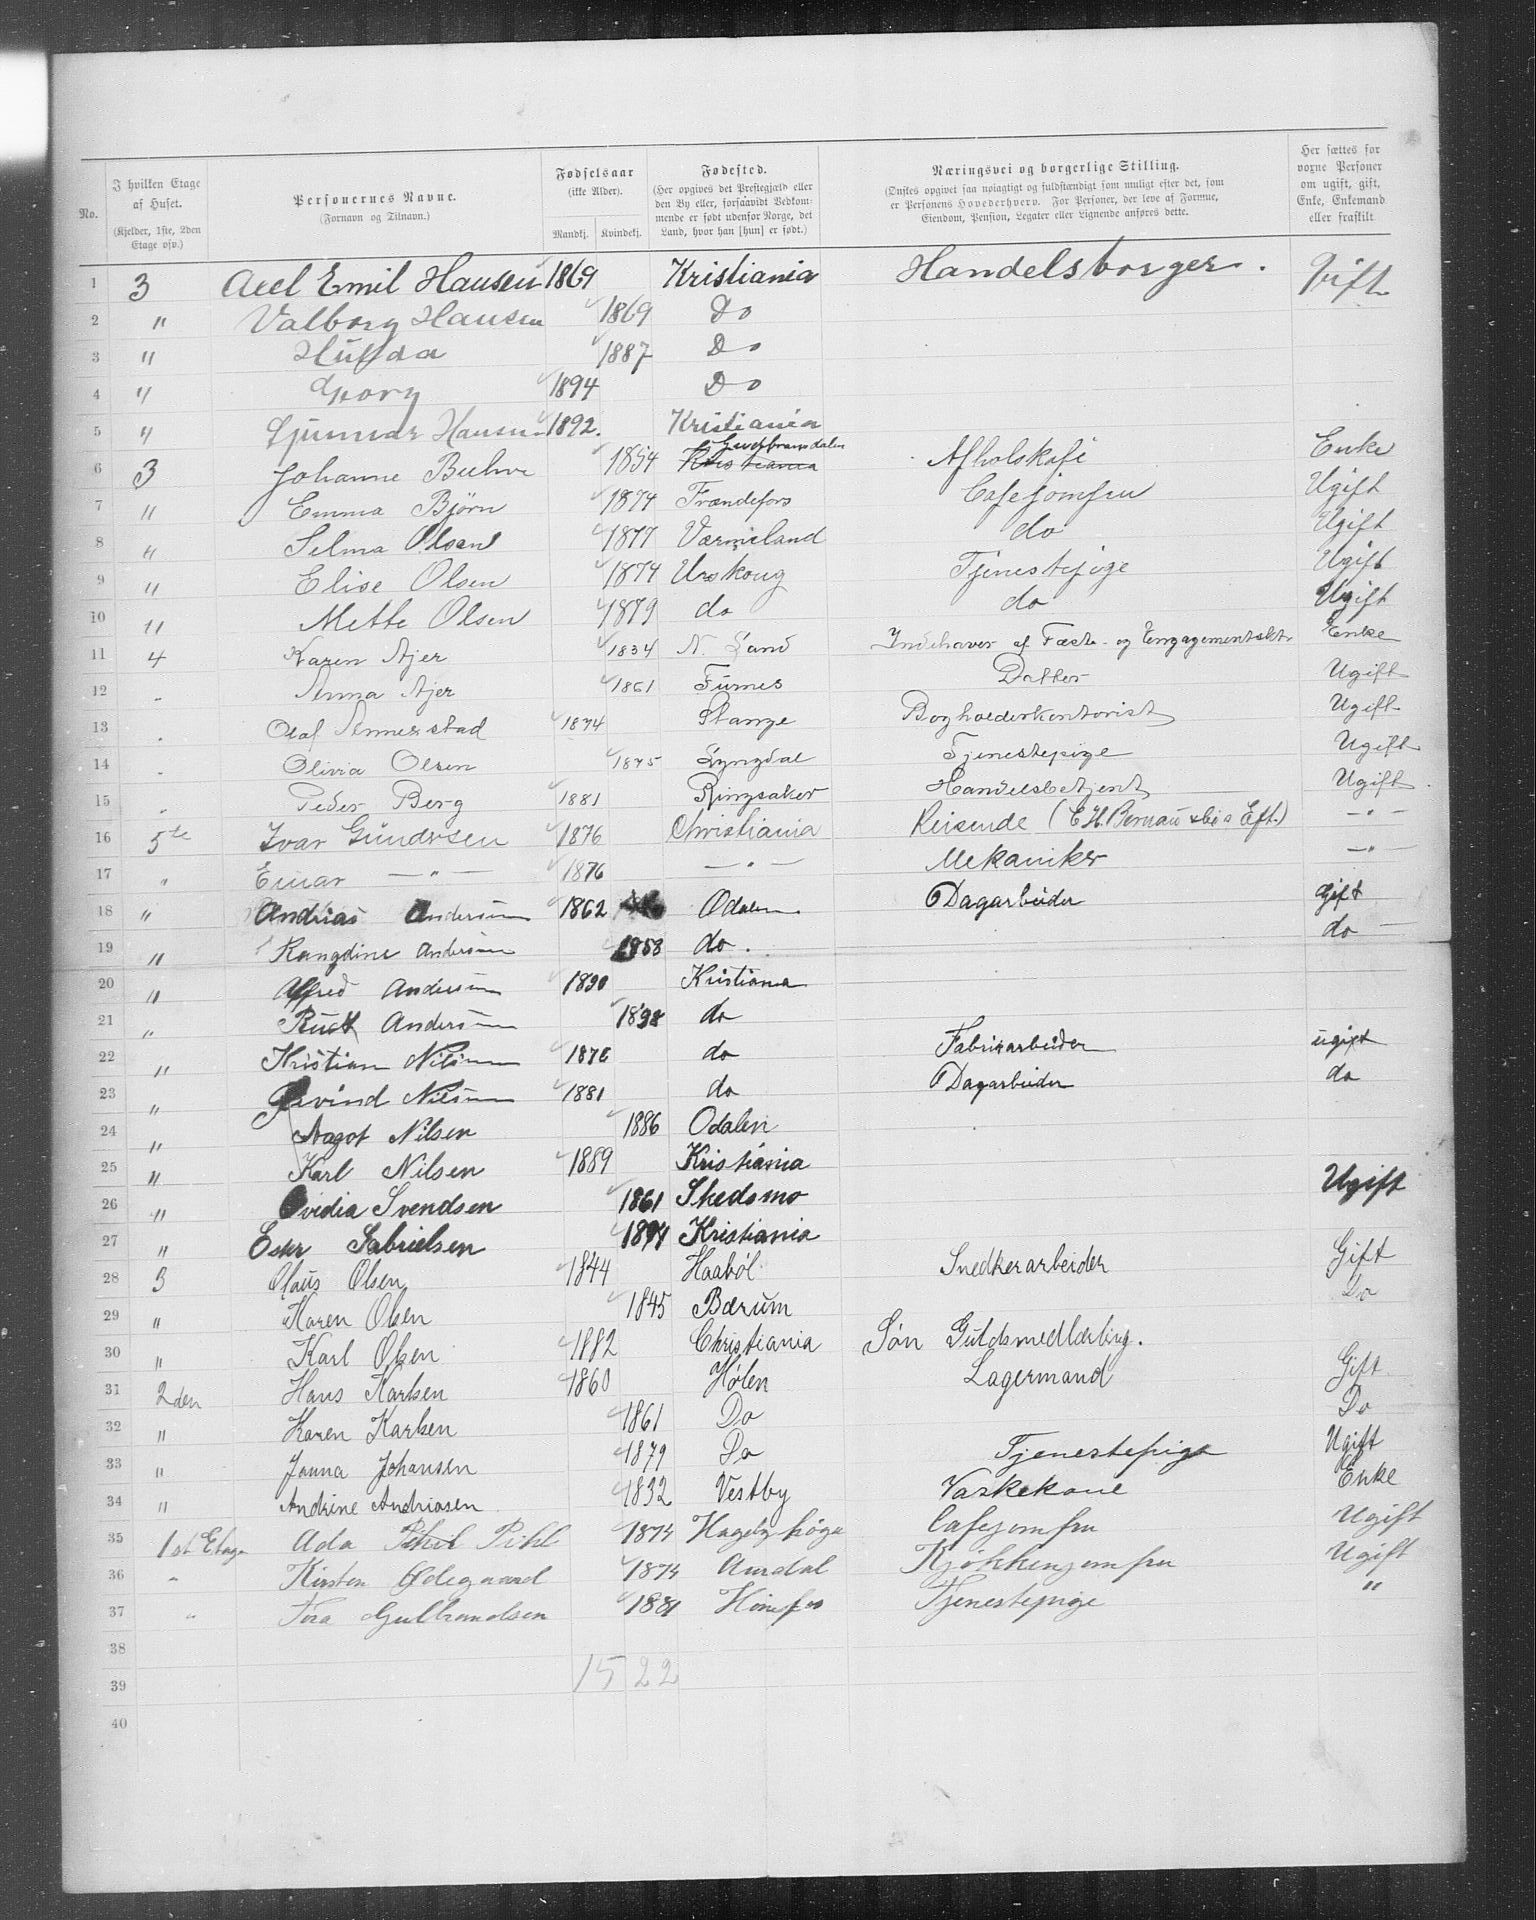 No.
I hvilken Etage af Huset. (Kjelder, 1ste, 2den Etage osv.)
Personernes Navne. (Fornavn og Tilnavn.)
Fødselsaar (ikke Alder). Mandkj. Kvindekj.
Fødested. (Her opgives det Prestegjæld eller den By eller, forsaavidt Vedkommende er født udenfor Norge, det Land, hvor han [hun] er født.)
Næringsvei og borgerlige Stilling. (Ønskes opgivet saa nøiagtigt og fuldstændigt som muligt efter det, som er Personens Hovederhverv. For Personer, der leve af Formue, Eiendom, Pension, Legater eller Lignende anføres dette.
Her sættes for voxne Personer om ugift, gift, Enke, Enkemand eller fraskilt
1 3 Axel Emil Hansen 1869 Kristiania Handelsborger. Gift
2 " Valborg Hansen 1869 Do
3 " Hulda 1887 Do
4 " Georg 1894 Do
5 " Gunnar Hansen 1892. Kristiania
6 3 Johanne 1854 Kristiania Gudbrandsdalen Afholskafe Enke
7 " Emma Bjørn 1874 Frændefors Cafejomfru Ugift
8 " Selma Olsen 1877 Værmeland do Ugift
9 " Elise Olsen 1874 Urskoug Tjenestepige Ugift
10 " Mette Olsen 1879 do do Ugift
11 4 Karen Ajer 1834 N. Land Indehaver af Fæste- og Engagementsktr Enke
12 " Anna Ajer 1861 Furnes Datter Ugift
13 " Olaf Annexstad 1874 Stange Bogholderkontorist Ugift
14 " Olivia Olsen 1875 Lyngdal Tjenestepige Ugift
15 " Peder Berg 1881 Ringsaker Handelsbetjent Ugift.
16 5te Ivar Gundersen 1876 Christiania Reisende (E.H. Eft.) — " —
17 " Einar — " — 1876 — " — Mekaniker — " —
18 " Andreas Andersen 1862 Odalen Dagarbeider gift
19 " Rangdine Andersen 1858 do. do —
20 " Alfred Andersen 1890 Kristiania
21 " Rutt Andersen 1898 do
22 " Kristian Nilsen 1876 do Fabrikarbeider ugift
23 " Øivind Nilsen 1881 do Dagarbeider do
24 " Aagot Nilsen 1886 Odalen
25 " Karl Nilsen 1889 Kristiania
26 " Ovidia Svendsen 1861 Skedsmo Ugift
27 " Ester Gabrielsen 1894 Kristiania
28 3 Olaus Olsen 1844 Haabøl Snedkerarbeider Gift
29 " Karen Olsen 1845 Bærum Do
30 " Karl Olsen 1882 Christiania Søn Guldsmedlærling.
31 2den Hans Karlsen 1860 Hølen Lagermand Gift
32 " Karen Karlsen 1861 Do Do
33 " Janna Johansen 1879 Do Tjenestepige Ugift
34 " Andrine Andriasen 1832 Vestby Vaskekone Enke
35 1st Etage Ada Pihl 1874 Cafejomfru Ugift
36 " Kirsten Ødegaard 1874 Aurdal Kjøkkenjomfru Ugift
37 " Tora Gulbrandsen 1881 Hønefos Tjenestepige "
38
39 15 22
40